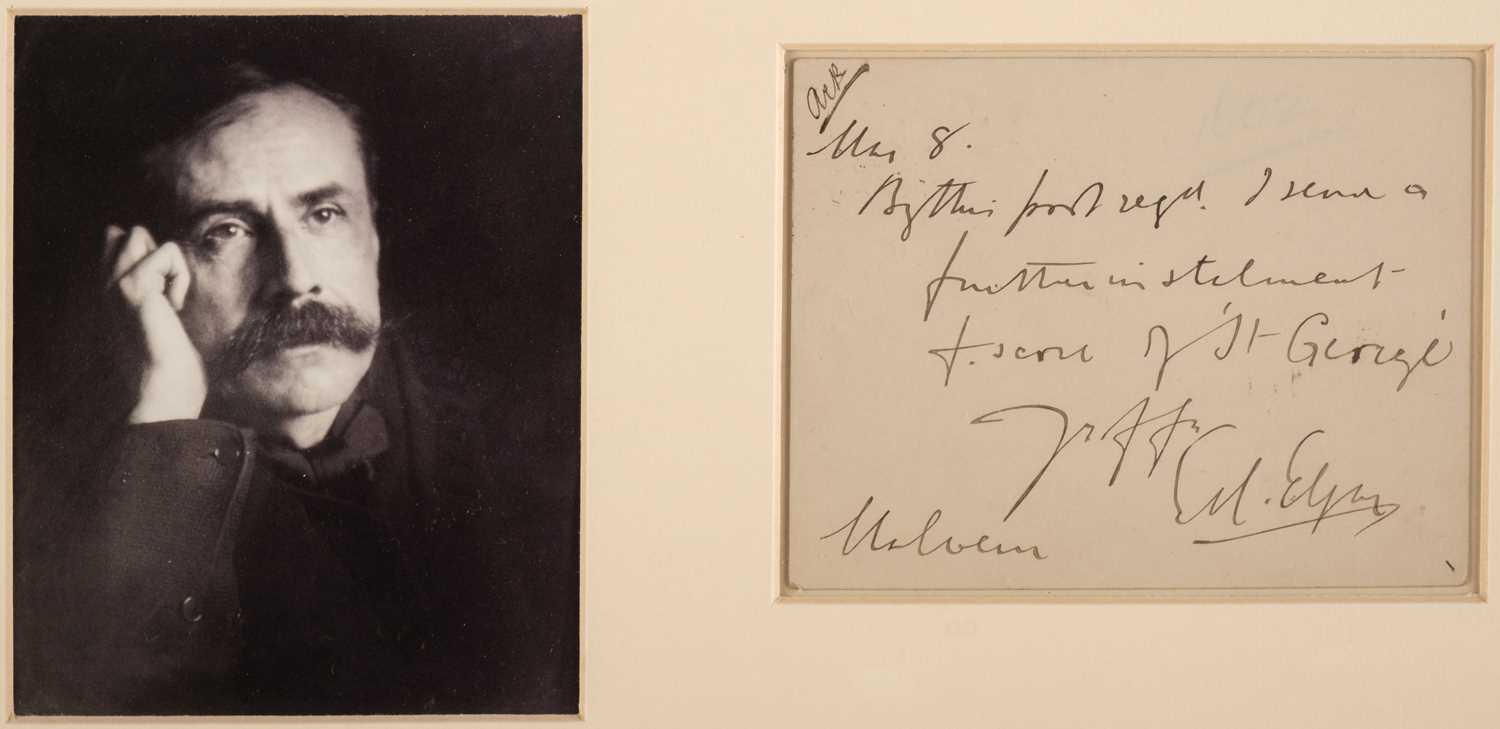 Ack
Mar 8.
By this post regd. I send a
further instalment
f. score of 'St George'
Yrs ffy
Ed. Elgar
Malvern